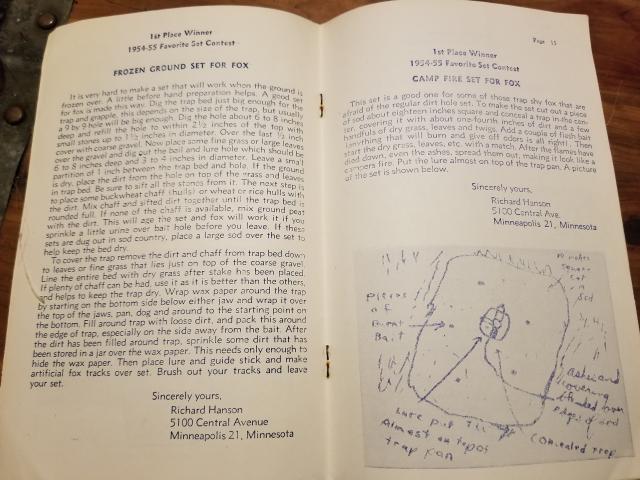 1st Place Winner
1954-55 Favorite Set Contest
FROZEN GROUND SET FOR FOX
It is very hard to make a set that will work when the ground is
frozen over. A little before hand preparation helps. A good set
for fox is made this way. Dig the trap bed just big enough for the
trap and grapple, this depends on the size of the trap, but usually
a 9 by 9 hole will be big enough. Dig the hole about 6 to 8 inches
deep and refill the hole to within 2½ inches of the top with
small stones up to 1½ inches in diameter. Over the last ½ inch
cover with coarse gravel. Now place some fine grass or large leaves
over the gravel and dig out the bait and lure hole which should be
6 to 8 inches deep and 3 to 4 inches in diameter. Leave a small
partition of 1 inch between the trap bed and hole. If the ground
is dry, place the dirt from the hole on top of the grass and leaves
in trap bed. Be sure to sift all the stones from it. The next step is
to place some buckwheat chaff (hulls) or wheat or rice hulls with
the dirt. Mix chaff and sifted dirt together until the trap bed is
rounded full. If none of the chaff is available, mix ground peat
with the dirt. This will age the set and fox will work it if you
sprinkle a little urine over bait hole before you leave. If these
sets are dug out in sod country, place a large sod over the set to
help keep the bed dry.
To cover the trap remove the dirt and chaff from trap bed down
to leaves or fine grass that lies just on top of the coarse gravel.
Line the entire bed with dry grass after stake has been placed.
If plenty of chaff can be had, use it as it is better than the others,
and helps to keep the trap dry. Wrap wax paper around the trap
by starting on the bottom side below either jaw and wrap it over
the top of the jaws, pan, dog and around to the starting point on
the bottom. Fill around trap with loose dirt, and pack this around
the edge of trap, especially on the side away from the bait. After
the dirt has been filled around trap, sprinkle some dirt that has
been stored in a jar over the wax paper. This needs only enough to
hide the wax paper. Then place lure and guide stick and make
artificial fox tracks over set. Brush out your tracks and leave
your set.
Sincerely yours,
Richard Hanson
5100 Central Avenue
Minneapolis 21, Minnesota
Page 15
1st Place Winner
1954-55 Favorite Set Contest
CAMP FIRE SET FOR FOX
This set is a good one for some of those trap shy fox that are
afraid of the regular dirt hole set. To make the set cut out a piece
of sod about eighteen inches square and conceal a trap in the cen-
ter, covering it with about one-fourth inches of dirt and a few
handfuls of dry grass, leaves and twigs. Add a couple of flesh bait
(anything that will burn and give off odors is all right). Then
start the dry grass, leaves, etc. with a match. After the flames have
died down, even the ashes, spread them out, making it look like a
campers fire. Put the lure almost on top of the trap pan. A picture
of the set is shown below.
Sincerely yours,
Richard Hanson
5100 Central Ave.
Minneapolis 21, Minnesota
inches
square
cut
in
Sod
Pieces
of
Burnt
Bait
Ashes and
covering
blended over
edge of sod
Lure put
Almost on top of
trap pan
Concealed trap